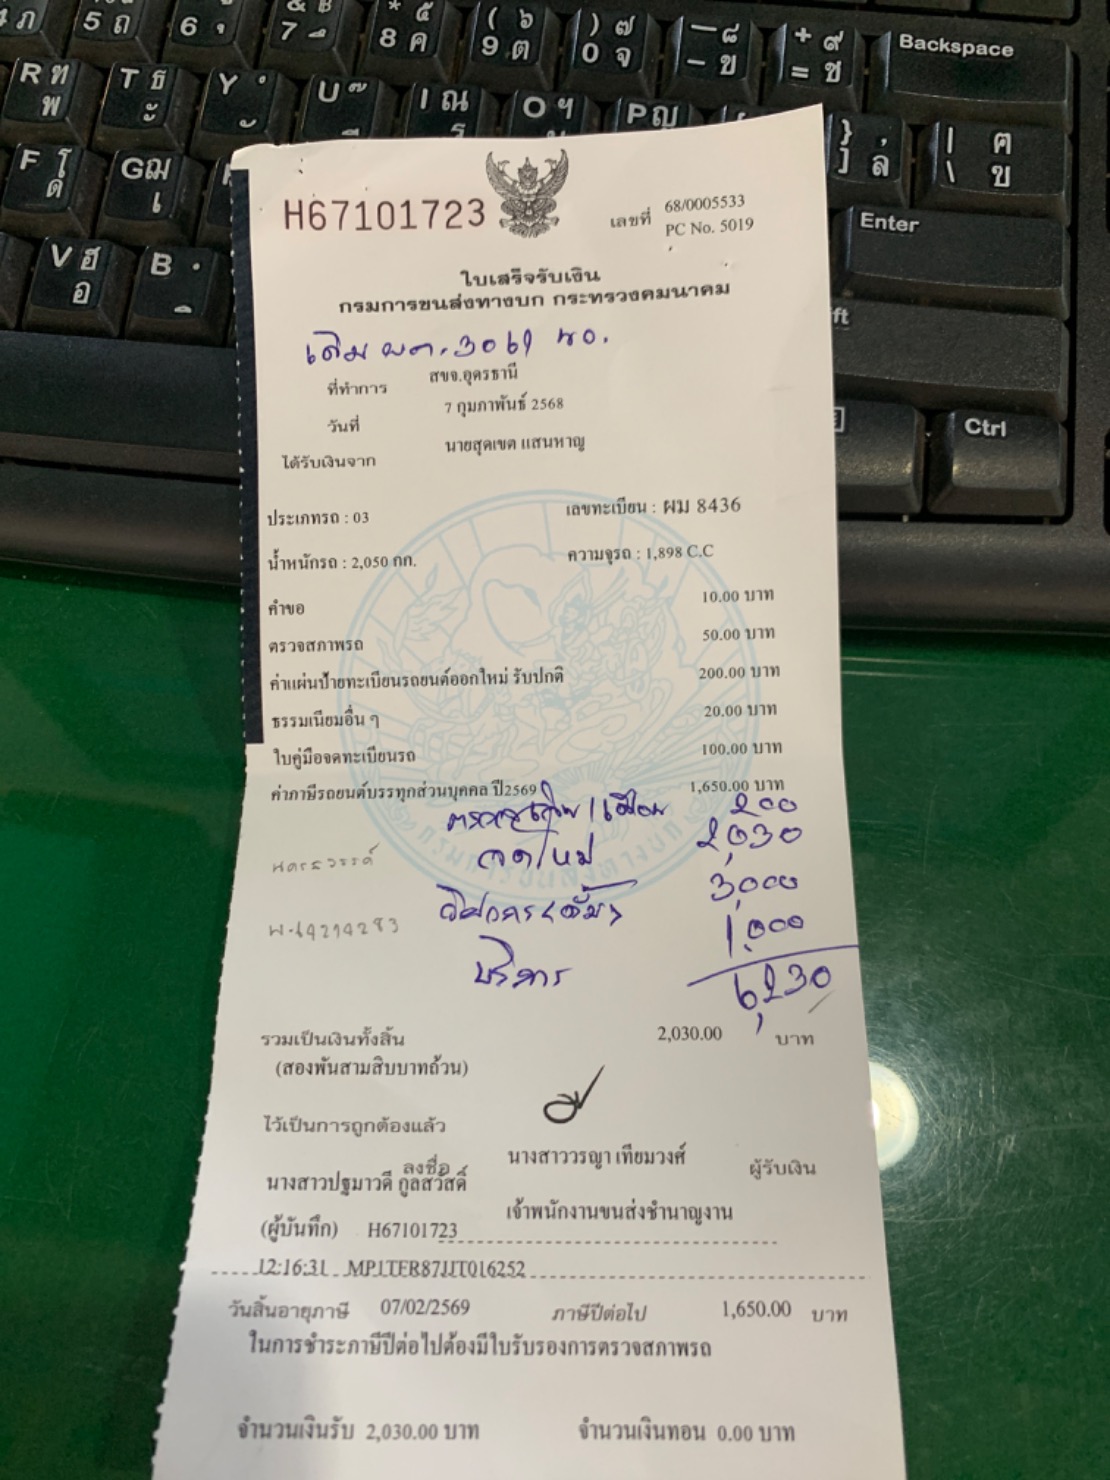 H67101723
เลขที่ 68/0005533
PC No. 5019
ใบเสร็จรับเงิน
กรมการขนส่งทางบก กระทรวงคมนาคม
เดิม ผก.3069 ขก.
ที่ทำการ สขจ.อุดรธานี
วันที่ 7 กุมภาพันธ์ 2568
ได้รับเงินจาก นายสุดเขต แสนหาญ
ประเภทรถ : 03 เลขทะเบียน : ผม 8436
น้ำหนักรถ : 2,050 กก. ความจุรถ : 1,898 C.C
คำขอ 10.00 บาท
ตรวจสภาพรถ 50.00 บาท
ค่าแผ่นป้ายทะเบียนรถยนต์ออกใหม่ รับปกติ 200.00 บาท
ธรรมเนียมอื่น ๆ 20.00 บาท
ใบคู่มือจดทะเบียนรถ 100.00 บาท
ค่าภาษีรถยนต์บรรทุกส่วนบุคคล ปี2569 1,650.00 บาท
200
จดใหม่ 2,030
นครสวรรค์
วิศวกร 3,000
บริการ 1,000
6,230
รวมเป็นเงินทั้งสิ้น 2,030.00 บาท
(สองพันสามสิบบาทถ้วน)
ไว้เป็นการถูกต้องแล้ว
ลงชื่อ นางสาววรญา เทียมวงศ์ ผู้รับเงิน
นางสาวปฐมาวดี กูลสวัสดิ์
เจ้าพนักงานขนส่งชำนาญงาน
(ผู้บันทึก) H67101723
12:16:31 MP1TFR87JJT016252
วันสิ้นอายุภาษี 07/02/2569 ภาษีปีต่อไป 1,650.00 บาท
ในการชำระภาษีปีต่อไปต้องมีใบรับรองการตรวจสภาพรถ
จำนวนเงินรับ 2,030.00 บาท จำนวนเงินทอน 0.00 บาท